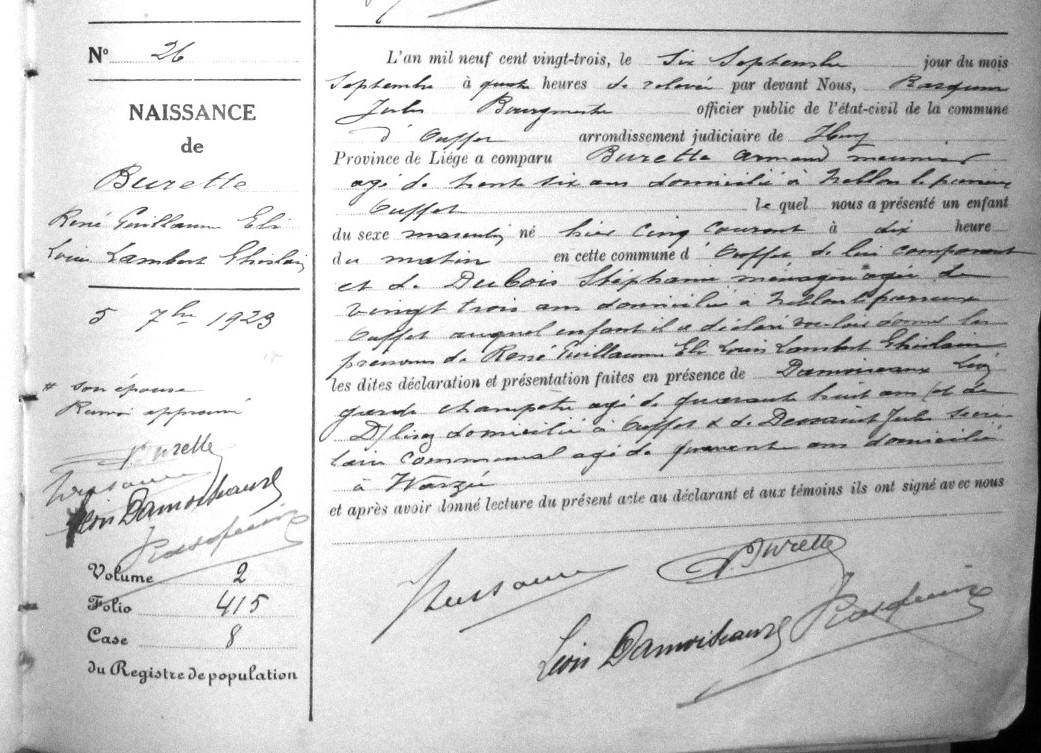 N° 26
NAISSANCE
de
Burette
René Guillaume Eli
Louis Lambert Ghislain
5 7bre 1923
# son épouse
Renvoi approuvé
Burette
Léon Damoiseaux
Volume 2
Folio 415
Case 8
du Registre de population
L'an mil neuf cent vingt-trois, le Six Septembre jour du mois
Septembre à quatre heures de relevée par devant Nous,
Jules Bourgmestre officier public de l'état-civil de la commune
d'Ouffet arrondissement judiciaire de Huy
Province de Liége a comparu Burette Armand meunier
agé de trente six ans domicilié à
Ouffet le quel nous a présenté un enfant
du sexe masculin né hier cinq courant à dix heure
du matin en cette commune d'Ouffet de lui comparant
et de Dubois Stéphanie ménagère # agée de
vingt trois ans domiciliée à
Ouffet auquel enfant il a déclaré vouloir donner les
prénoms de René Guillaume Eli Louis Lambert Ghislain
les dites déclaration et présentation faites en présence de Damoiseaux Léon
garde champêtre agé de quarante huit ans et de
domicilié à Ouffet & de Dessaint Jules secré-
taire communal agé de quarante ans domicilié
à Warzée
et après avoir donné lecture du présent acte au déclarant et aux témoins ils ont signé avec nous
Burette
Léon Damoiseaux